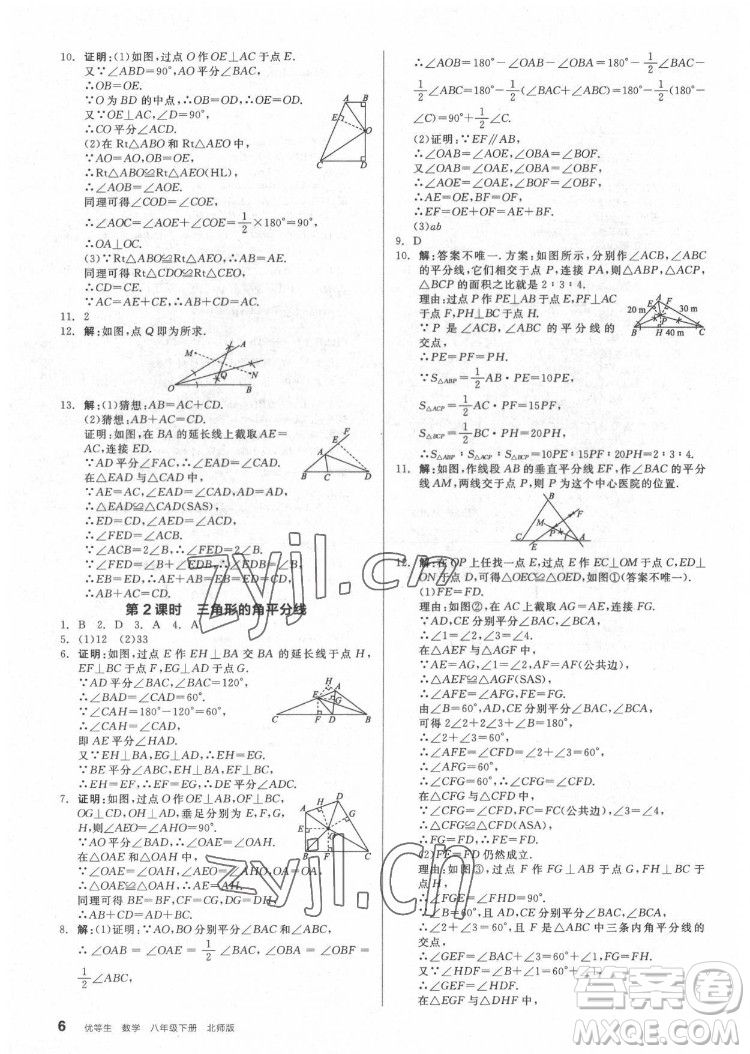 10. 证明:(1)如图,过点 O 作 OE⊥AC 于点 E.
又∵∠ABD=90°,OA 平分∠BAC,
∴OB=OE.
∵O 为 BD 的中点,∴OB=OD,∴OE=OD.
又∵OE⊥AC,∠D=90°,
∴CO 平分∠ACD.
(2)在 Rt△ABO 和 Rt△AEO 中,
∵AO=AO,OB=OE,
∴Rt△ABO≌Rt△AEO(HL),
∴∠AOB=∠AOE.
同理可得∠COD=∠COE,
∴∠AOC=∠AOE+∠COE=1/2×180°=90°,
∴OA⊥OC.
(3)∵Rt△ABO≌Rt△AEO,∴AB=AE.
同理可得 Rt△CDO≌Rt△CEO,
∴CD=CE.
∵AE+CE=AC,∴AB+CD=AC.
11. 2
12. 解:如图,点 Q 即为所求.
A
M
Q
N
O
B
13. 解:(1)猜想:AB=AC+CD.
(2)猜想:AB+AC=CD.
证明:如图,在 BA 的延长线上截取 AE=
AC,连接 ED.
∵AD 平分∠FAC,∴∠EAD=∠CAD.
在△EAD 与△CAD 中,
∵AE=AC,∠EAD=∠CAD,AD=AD,
∴△EAD≌△CAD(SAS),
∴ED=CD,∠AED=∠ACD,
∴∠FED=∠ACB.
∵∠ACB=2∠B,∴∠FED=2∠B.
又∵∠FED=∠B+∠EDB,
∴∠EDB=∠B,∴EB=ED,
∴AB+AE=EB=ED=CD,
∴AB+AC=CD.
第 2 课时 三角形的角平分线
1. B 2. D 3. A 4. A
5. (1)12 (2)33
6. 证明:如图,过点 E 作 EH⊥BA 交 BA 的延长线于点 H,
EF⊥BC 于点 F,EG⊥AD 于点 G.
∵AD 平分∠BAC,∠BAC=120°,
∴∠BAD=∠CAD=60°.
∵∠CAH=180°-120°=60°,
∴∠CAH=∠CAD,
即 AE 平分∠HAD.
又∵EH⊥AB,EG⊥AD,∴EH=EG.
∵BE 平分∠ABC,EH⊥AB,EF⊥BC,
∴EH=EF,∴EF=EG,∴DE 平分∠ADC.
7. 证明:如图,过点 O 作 OE⊥AB,OF⊥BC,
OG⊥CD,OH⊥DA,垂足分别为 E,F,G,
H,则∠AEO=∠AHO=90°.
∵AO 平分∠BAD,∴∠OAE=∠OAH.
在△OAE 和△OAH 中,
∵∠OAE=∠OAH,∠AEO=∠AHO,OA=OA,
∴△OAE≌△OAH,∴AE=AH.
同理可得 BE=BF,CF=CG,DG=DH,
∴AB+CD=BC+AD.
8. 解:(1)证明:∵AO,BO 分别平分∠BAC 和∠ABC,
∴∠OAB=∠OAE=1/2∠BAE,∠OBA=∠OBF=
1/2∠ABC,
∴∠AOB=180°-∠OAB-∠OBA=180°-1/2∠BAC-
1/2∠ABC=180°-1/2(∠BAC+∠ABC)=180°-1/2(180°-
∠C)=90°+1/2∠C.
(2)证明:∵EF∥AB,
∴∠OAB=∠AOE,∠OBA=∠BOF.
又∵∠OAB=∠OAE,∠OBA=∠OBF,
∴∠OAE=∠AOE,∠OBF=∠BOF,
∴AE=OE,BF=OF,
∴AE+BF=OE+OF=EF.
(3)ab
9. D
10. 解:答案不唯一. 方案:如图所示,分别作∠ACB,∠ABC
的平分线,它们相交于点 P,连接 PA,则△ABP,△ACP,
△BCP 的面积之比为 2∶3∶4.
理由:过点 P 作 PE⊥AB 于点 E,PF⊥AC
于点 F,PH⊥BC 于点 H.
∵P 是∠ABC 和∠ACB 的平分线的
交点,
20 m
30 m
40 m
∴PE=PF=PH.
∵S△ABP=1/2AB·PE=10PE,
S△ACP=1/2AC·PF=15PF,
S△BCP=1/2BC·PH=20PH,
∴S△ABP∶S△ACP∶S△BCP=10PE∶15PF∶20PH=2∶3∶4.
11. 解:如图,作线段 AB 的垂直平分线 EF,作∠BAC 的平分
线 AM,两线交于点 P,则 P 为这个中心医院的位置.
12. 解:在 OP 上任找一点 E,过点 E 作 EC⊥OM 于点 C,ED⊥
ON 于点 D,可得△OEC≌△OED,如图①(答案不唯一).
(1)FE=FD.
理由:如图②,在 AC 上截取 AG=AE,连接 FG.
∵AD,CE 分别平分∠BAC,∠BCA,
∴∠1=∠2,∠3=∠4.
在△AEF 与△AGF 中,
∵AG=AE,∠1=∠2,AF=AF(公共边),
∴△AEF≌△AGF(SAS),
∴∠AFE=∠AFG,FE=FG.
由∠B=60°,AD,CE 分别平分∠BAC,∠BCA,
可得 2∠2+2∠3+∠B=180°,
∴∠2+∠3=60°.
∴∠AFE=∠CFD=∠2+∠3=60°,
∴∠CFG=60°,
∴∠CFG=∠CFD.
在△CFG 与△CFD 中,
∵∠CFG=∠CFD,FC=FC(公共边),∠3=∠4,
∴△CFG≌△CFD(ASA),
∴FG=FD,∴FE=FD.
(2)FE=FD 仍然成立.
理由:如图③,过点 F 作 FG⊥AB 于点 G,FH⊥BC 于
点 H,
∴∠FGE=∠FHD=90°.
又由题意,得∠2+∠3=60°,
∴∠GEF=60°+∠1,FG=FH.
又∵F 是 AD,CE 的交点,即△ABC 中三条内角平分线的
交点,
∴∠GEF=∠HDF.
又∵∠HDF=∠B+∠1=60°+∠1,
∴∠GEF=∠HDF,
∴△EGF≌△DHF(AAS),
∴FE=FD.
6 优等生 数学 八年级下册 北师版
zyjl.cn
zyjl.cn
答案卷